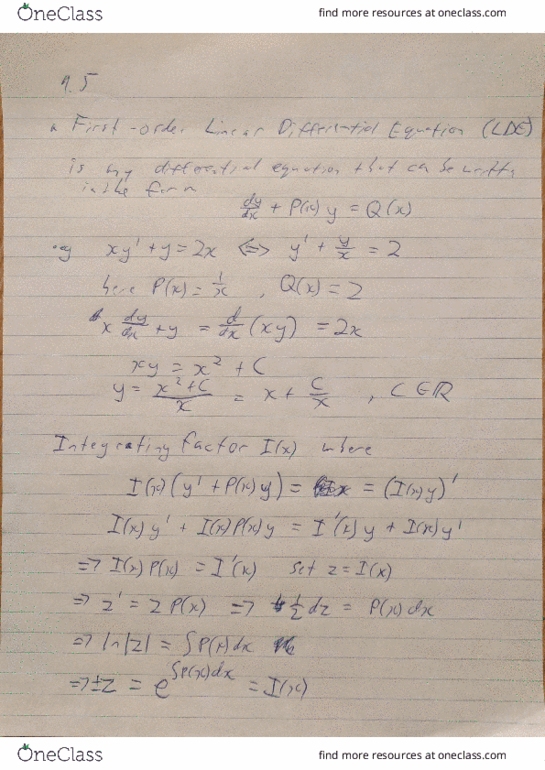 OneClass
find more resources at oneclass.com
9.5
First-order Linear Differential Equation (LDE)
is any differential equation that can be written
in the form
dy/dx + P(x) y = Q(x)
eg xy' + y = 2x <=> y' + y/x = 2
here P(x) = 1/x , Q(x) = 2
x dy/dx + y = d/dx (xy) = 2x
xy = x² + C
y = x²+C/x = x + C/x , C ∈ ℝ
Integrating factor I(x) where
I(x)(y' + P(x)y) = = (I(x)y)'
I(x)y' + I(x)P(x)y = I'(x)y + I(x)y'
=> I(x)P(x) = I'(x) set z = I(x)
=> z' = zP(x) => 1/z dz = P(x)dx
=> ln|z| = ∫P(x)dx
=> ±z = e^∫P(x)dx = I(x)
OneClass
find more resources at oneclass.com